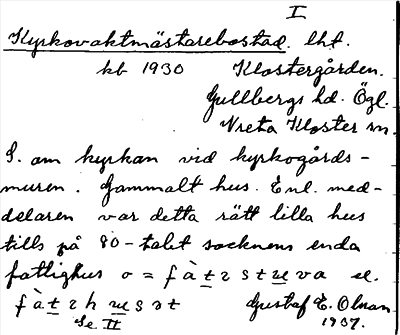 I
Kyrkovaktmästarebostad. lht.
kb 1930 Klostergården.
Gullbergs hd. Ögl.
Vreta Kloster sn.
S. om kyrkan vid kyrkogårds-
muren. Gammalt hus. Enl. med-
delaren var detta rätt lilla hus
tills på 80-talet socknens enda
fattighus o = fàtɩstuva el.
fàtɩhusət Gustaf E. Olman
Se II 1937.